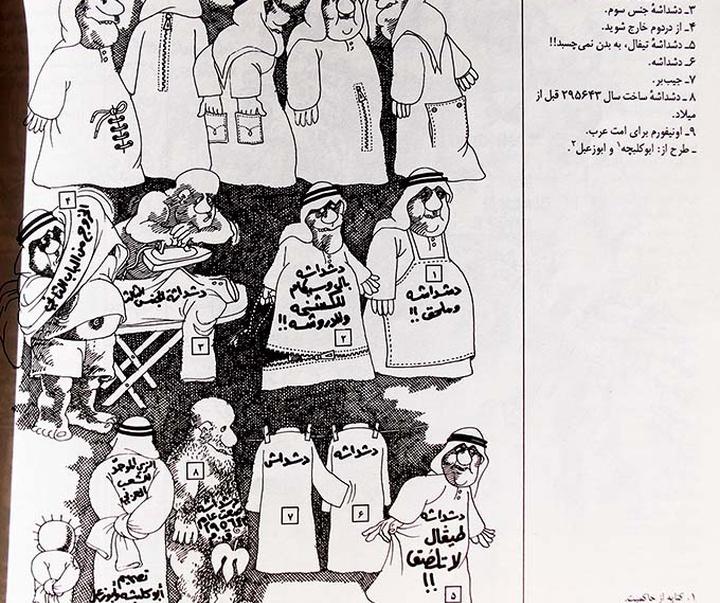 ۳ـ دشداشهٔ جنس سوم.
۴ـ از دردوم خارج شوید.
۵ـ دشداشهٔ تیفال، به بدن نمی‌چسبد!!
۶ـ دشداشه.
۷ـ جیب‌بر.
۸ ـ دشداشهٔ ساخت سال ۲۹۵۶۴۳ قبل از
میلاد.
۹ـ اونیفورم برای امت عرب.
ـ طرح از: ابوکلبچه۱ و ابوزعبل۲.
۴
الخروج من الباب الثاني
دشداشة الجنس الثالث
۳
دشداشه
للكشخه
والدروشه!!
۲
۱
دشداشه
وملحق!!
الزي الموحد
للشعب
العربي
تصميم
۸
دشداشه
دشداش
۷
دشداشه
۶
دشداشه
طيفال
لا تلصق
!!
۵
۱. کنایه از حاکمیت.